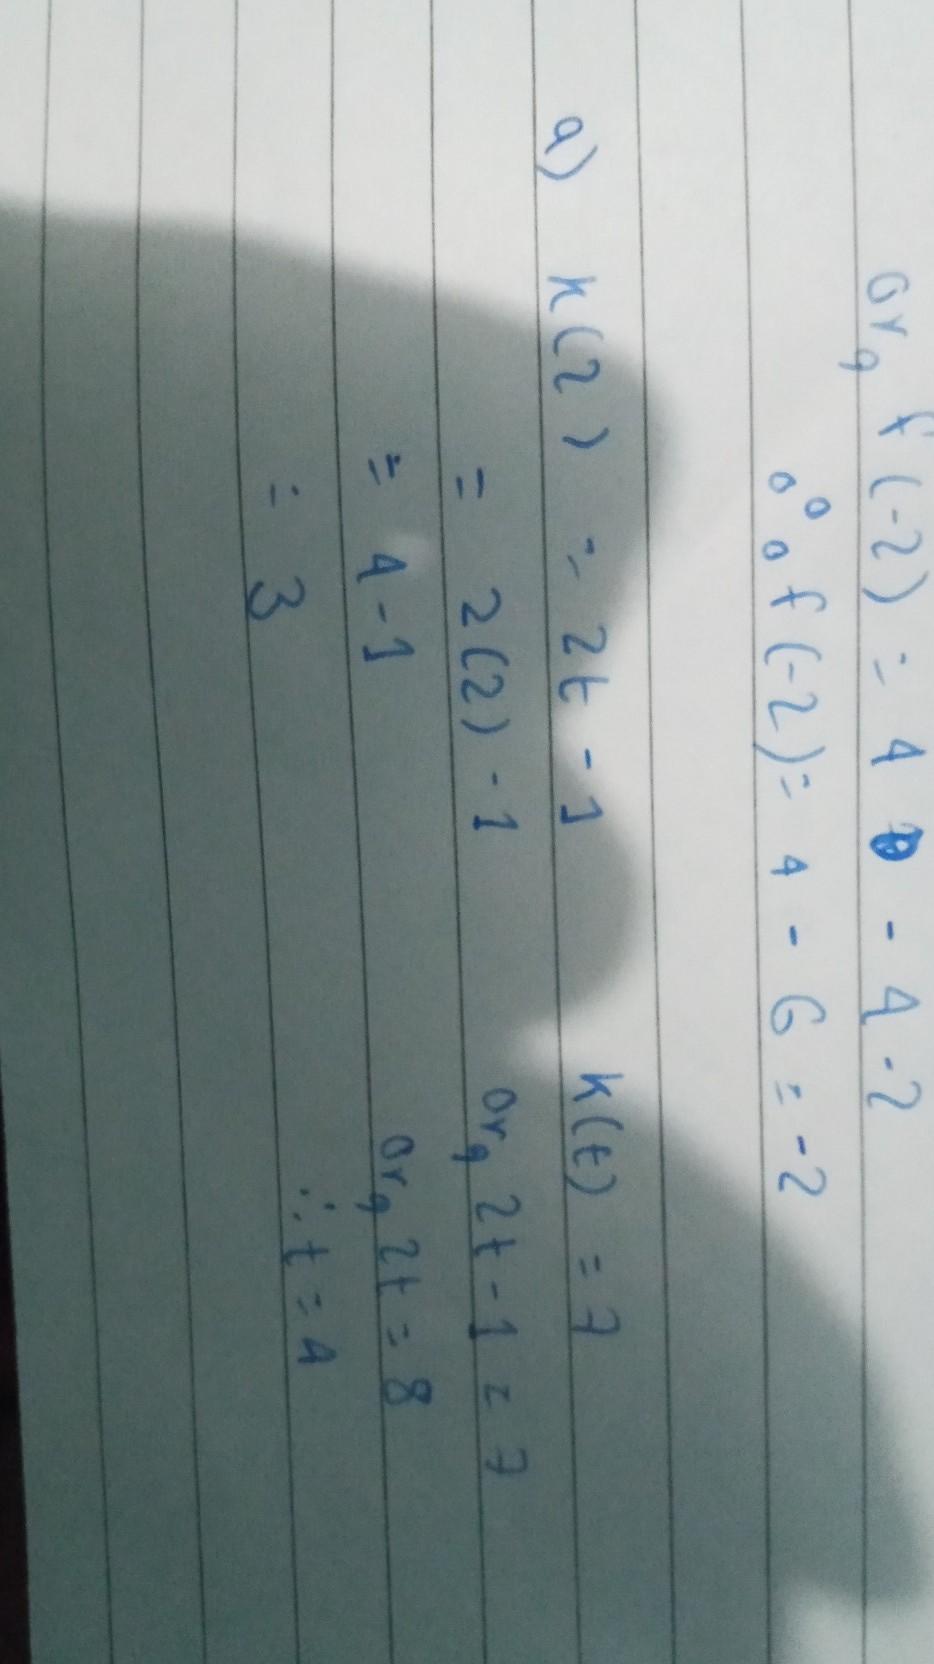 or, f(-2) = 4 - 4 - 2
∴ f(-2) = 4 - 6 = -2
a) k(2) = 2t - 1 k(t) = 7
= 2(2) - 1 or, 2t - 1 = 7
= 4 - 1 or, 2t = 8
= 3 ∴ t = 4